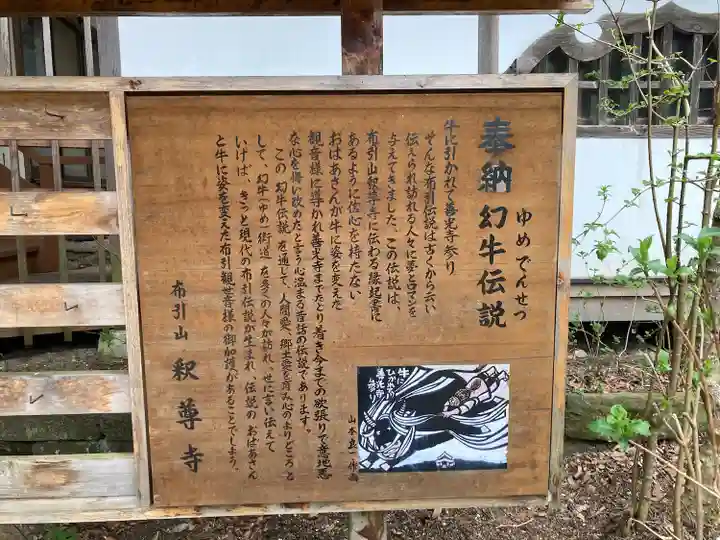 奉納 幻牛伝説
ゆめでんせつ
牛に引かれて善光寺参り
そんな布引伝説は古くから云い
伝えられ訪れる人々に夢とロマンを
与えてきました。この伝説は、
布引山釈尊寺に伝わる縁起書に
あるように信心を持たない
おばあさんが牛に姿を変えた
観音様に導かれ善光寺までたどり着き今までの欲張りで意地悪
な心を悔い改めたと言う心温まる昔話の伝説であります。
この〝幻牛伝説〟を通して、人間愛、郷土愛を育み心のよりどころと
して、幻牛(ゆめ)街道〟を多くの人々が訪れ、世に言い伝えて
いけば、きっと現代の布引伝説が生まれ、伝説のおばあさん
と牛に姿を変えた布引観世音様の御加護があることでしょう。
布引山 釈尊寺
山本良一 作画
牛に
ひかれて
善光寺
参り